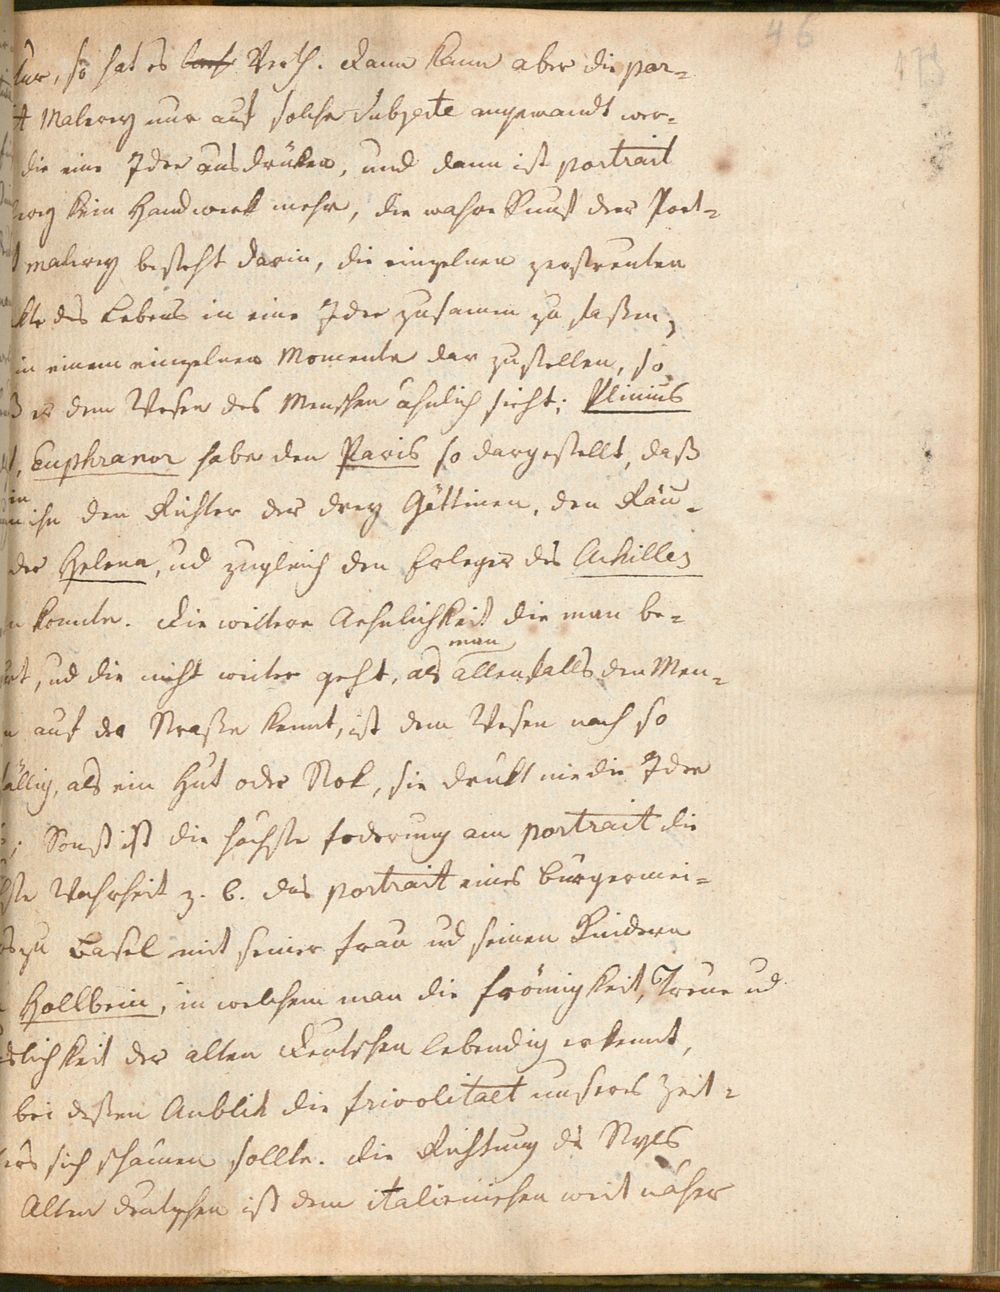 46
tur, so hat es Werth. Dann kann aber die por-
t Malerey nur auf solche Subjecte angewandt wer-
die eine Idee ausdrüken, und dann ist portrait
lerey kein Handwerk mehr, die wahre Kunst der Port-
t malerey besteht darin, die einzelnen zerstreuten
kte des Lebens in eine Idee zusamen zu faßen,
in einem einzelnen Momente dar zustellen, so
ß es dem Wesen des Menschen ähnlich sieht; Plinius
t, Euphranor habe den Paris so dargestellt, daß
ihn den Richter der drey Göttinen, den Räu-
der Helena, ud zugleich den Erleger des Achilles
n konnte. Die weitere Aehnlichkeit die man be-
man
rt, ud die nicht weiter geht, als allenfalls den Men-
n auf der Straße kennt, ist dem Wesen nach so
fällig, als ein Hut oder Rok, sie drukt nie die Idee
Sonst ist die höchste foderung am portrait die
ste Wahrheit z. b. das portrait eines bürgermei-
rs zu Basel mit seiner frau ud seinen Kindern
Hollbein, in welchem man die frömigkeit, Treue ud
dlichkeit der alten Deutschen lebendig erkennt,
bei deßen Anblik die frivolitaet unseres Zeit-
ers sich schämen sollte. Die Richtung des Styls
Alten deutschen ist dem italienischen weit näher